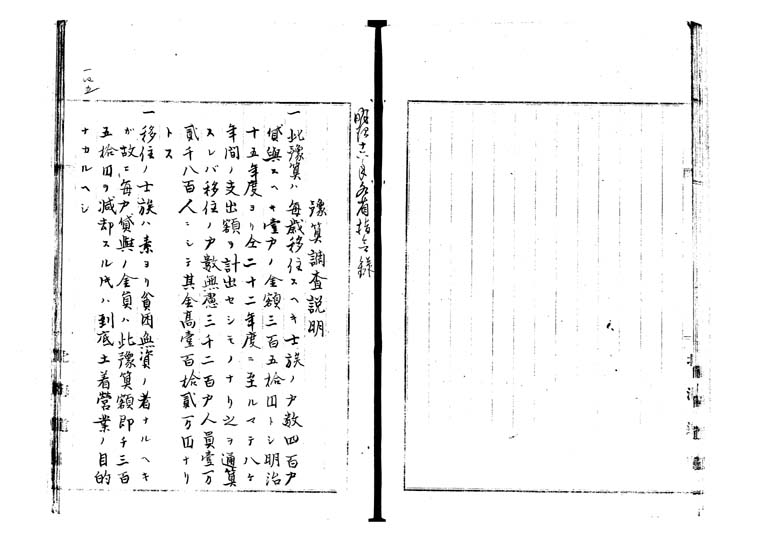 豫算調査説明
一此豫算ハ毎歳移住スヘキ士族ノ戸数四百戸
貸與スヘキ壹戸ノ金額三百五拾円トシ明治
十五年度ヨリ仝二十二年度ニ至ルマテ八ヶ
年間ノ支出額ヲ計出セシモノナリ之ヲ通算
スレバ移住ノ戸数無慮三千二百戸人員壹万
貳千八百人ニシテ其金高壹百拾貳万円ナリ
トス
一移住ノ士族ハ素ヨリ貧困無資ノ者ナルヘキ
が故ニ毎戸貸與ノ金員ハ此豫算額即チ三百
五拾円ヲ減却スル時ハ到底土着営業ノ目的
ナカルヘシ